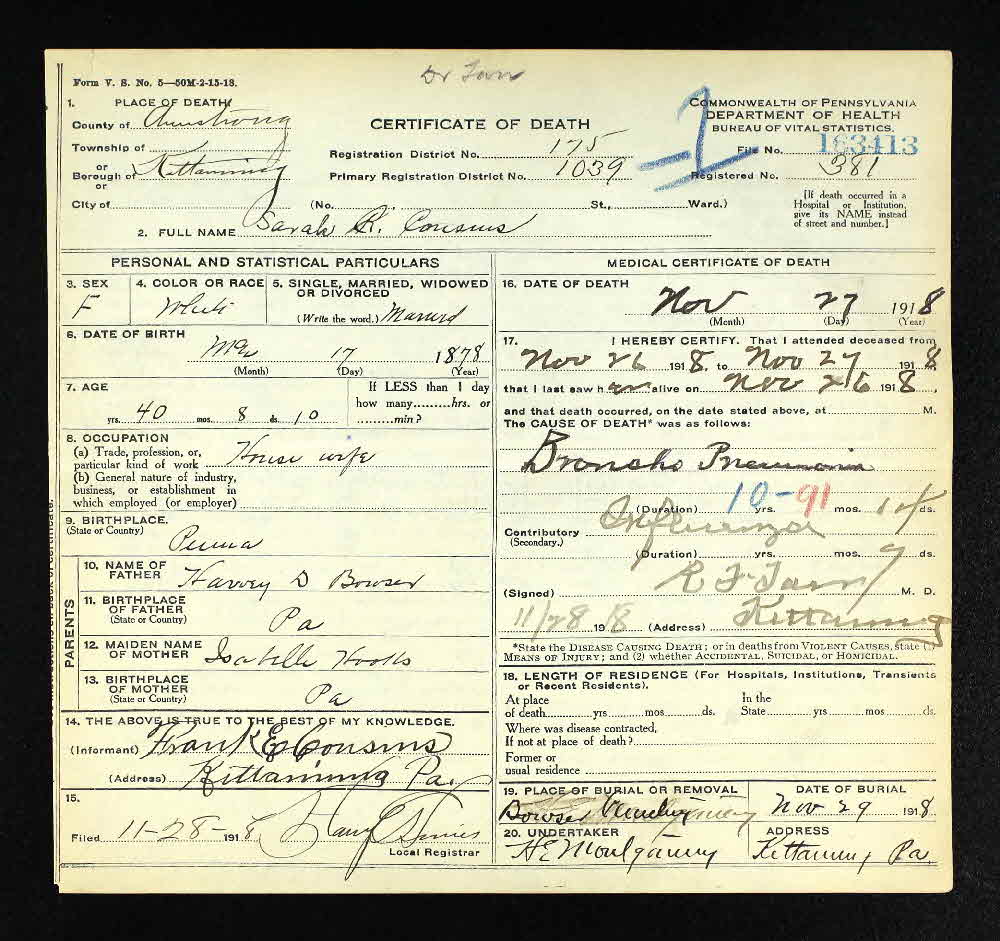 Form V. S. No. 5—50M-2-15-18.
Dr
1. PLACE OF DEATH
County of Armstrong
Township of
or
Borough of Kittanning
or
City of
CERTIFICATE OF DEATH
Registration District No. 175
Primary Registration District No. 1039
(No. St., Ward.)
COMMONWEALTH OF PENNSYLVANIA
DEPARTMENT OF HEALTH
BUREAU OF VITAL STATISTICS.
File No. 163413
Registered No. 381
[If death occurred in a
Hospital or Institution,
give its NAME instead
of street and number.]
2. FULL NAME Sarah R. Cousins
PERSONAL AND STATISTICAL PARTICULARS
3. SEX
F
4. COLOR OR RACE
White
5. SINGLE, MARRIED, WIDOWED
OR DIVORCED
(Write the word.) Married
6. DATE OF BIRTH
Mar 17 1878
(Month) (Day) (Year)
7. AGE
40 yrs. 8 mos. 10 ds.
If LESS than 1 day
how many.........hrs. or
.........min?
8. OCCUPATION
(a) Trade, profession, or,
particular kind of work House wife
(b) General nature of industry,
business, or establishment in
which employed (or employer)
9. BIRTHPLACE.
(State or Country)
Penna
PARENTS
10. NAME OF
FATHER Harvey D Bowser
11. BIRTHPLACE
OF FATHER
(State or Country)
Pa
12. MAIDEN NAME
OF MOTHER Isabelle Hooks
13. BIRTHPLACE
OF MOTHER
(State or Country)
Pa
14. THE ABOVE IS TRUE TO THE BEST OF MY KNOWLEDGE.
(Informant) Frank E Cousins
(Address) Kittanning Pa.
15.
Filed 11-28-1918
Local Registrar
MEDICAL CERTIFICATE OF DEATH
16. DATE OF DEATH
Nov 27 1918
(Month) (Day) (Year)
17. I HEREBY CERTIFY. That I attended deceased from
Nov 26 1918. to Nov 27 1918.
that I last saw h er alive on Nov 26 1918.
and that death occurred, on the date stated above, at M.
The CAUSE OF DEATH* was as follows:
Broncho Pneumonia
10-91
(Duration) yrs. mos. ds.
Contributory Influenza
(Secondary.)
(Duration) yrs. mos. 9 ds.
(Signed) R F M. D.
11/28 1918 (Address) Kittanning
*State the DISEASE CAUSING DEATH; or in deaths from VIOLENT CAUSES, state (1)
MEANS OF INJURY; and (2) whether ACCIDENTAL, SUICIDAL, or HOMICIDAL.
18. LENGTH OF RESIDENCE (For Hospitals, Institutions, Transients
or Recent Residents).
At place In the
of death yrs. mos. ds. State yrs. mos. ds.
Where was disease contracted,
If not at place of death?
Former or
usual residence
19. PLACE OF BURIAL OR REMOVAL
Bowser
DATE OF BURIAL
Nov 29 1918
20. UNDERTAKER
H E Montgomery
ADDRESS
Kittanning Pa.